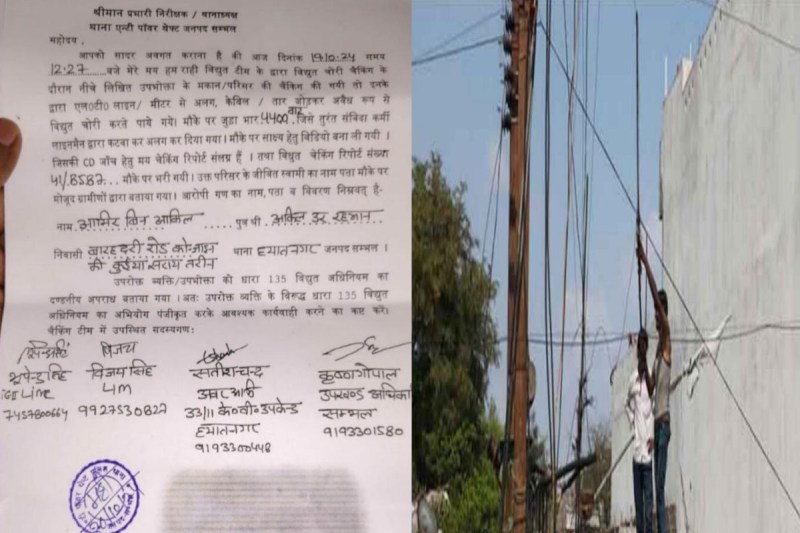 श्रीमान प्रभारी निरीक्षक / थानाध्यक्ष
थाना एन्टी पॉवर थेफ्ट जनपद सम्भल
महोदय,
आपको सादर अवगत कराना है की आज दिनांक 19/10/24 समय
12:27 बजे मेरे मय हम राही विद्युत टीम के द्वारा विद्युत चोरी चैकिंग के
दौरान नीचे लिखित उपभोक्ता के मकान/परिसर की चैकिंग की गयी तो इनके
द्वारा एल०टी० लाइन/ मीटर से अलग, केबिल / तार जोड़कर अवैध रूप से
विद्युत चोरी करते पाये गये। मौके पर जुड़ा भार 4400 वाट जिसे तुरंत संविदा कर्मी
लाइनमैन द्वारा कटवा कर अलग कर दिया गया। मौके पर साक्ष्य हेतु विडियो बना ली गयी ।
जिसकी CD जाँच हेतु मय चेकिंग रिपोर्ट संलग्न हैं । तथा विद्युत चेकिंग रिपोर्ट संख्या
41/8587 मौके पर भरी गयी। उक्त परिसर के जीवित स्वामी का नाम पता मौके पर
मोजूद ग्रामीणों द्वारा बताया गया। आरोपी गण का नाम, पता व विवरण निम्नवत् है-
नाम आमिर बिन आकिल पुत्र श्री अकिल उर रहमान
निवासी बारहदरी रोड कोन्जाइन थाना हयातनगर जनपद सम्भल ।
की कुईया सराय तरीन
उपरोक्त व्यक्ति/उपभोक्ता को धारा 135 विद्युत अधिनियम का
दण्डनीय अपराध बताया गया ।अतः उपरोक्त व्यक्ति के विरूद्ध धारा 135 विद्युत
अधिनियम का अभियोग पंजीकृत करके आवश्यक कार्यवाही करने का कष्ट करें।
चैकिंग टीम में उपस्थित सदस्यगण:
विजय
भूपेन्द्र सिंह विजय सिंह सतीशचन्द्र कृष्णगोपाल
Line LM उपखण्ड अधिकारी
33/11 के०वी० उपकेन्द्र सम्भल
7457800664 9927530827 हयातनगर 9193301580
9193300448